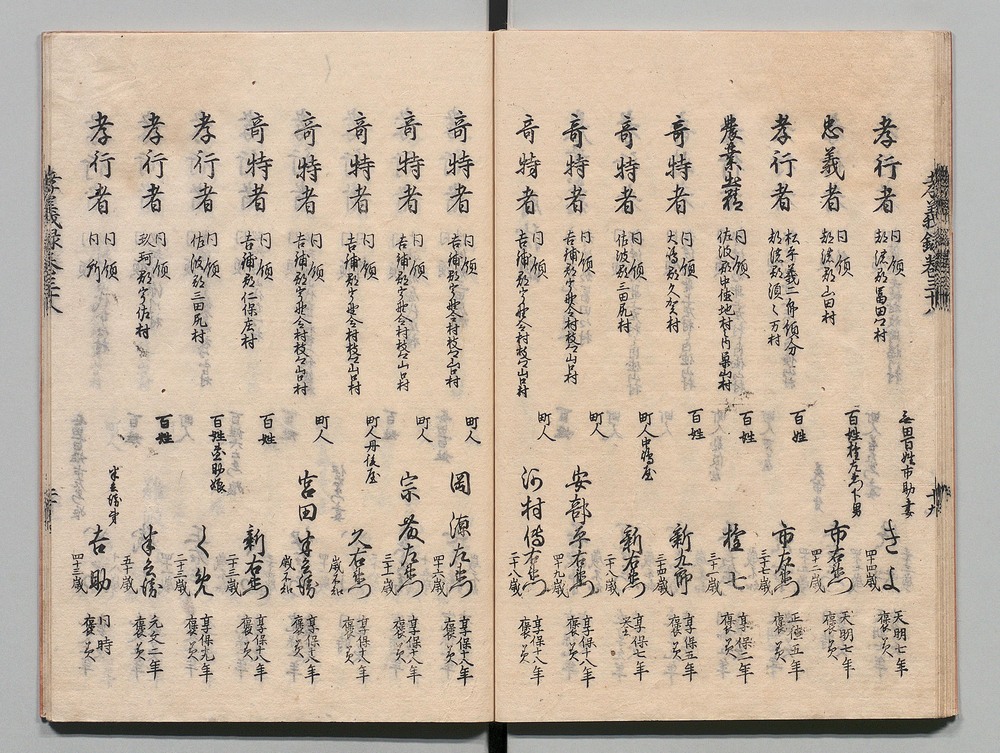 孝行者 同領 都濃郡富田村 無田百姓市助妻 きよ 四十四歳 天明七年 褒美
忠義者 同領 都濃郡山田村 百姓権左衛門下男 市右衛門 四十二歳 天明七年 褒美
孝行者 松平義二郎領分 都濃郡須々万村 百姓 市左衛門 三十七歳 正徳五年 褒美
農業出精 同領 佐波郡中徳地村内 百姓 権七 三十一歳 享保二年 褒美
奇特者 同領 大嶋郡久賀村 百姓 新九郎 三十四歳 享保五年 褒美
奇特者 同領 佐波郡三田尻村 町人中嶋屋 新右衛門 二十八歳 享保七年 褒美
奇特者 同領 吉鋪郡宇野令村枝山口村 町人 安部平右衛門 四十九歳 享保十八年 褒美
奇特者 同領 吉鋪郡宇野令村枝山口村 町人 河村傳右衛門 二十八歳 享保十八年 褒美
奇特者 同領 吉鋪郡宇野令村枝山口村 町人 岡源左衛門 四十六歳 享保十八年 褒美
奇特者 同領 吉鋪郡宇野令村枝山口村 町人 宗藤左衛門 三十二歳 享保十八年 褒美
奇特者 同領 吉鋪郡宇野令村枝山口村 町人丹後屋 久右衛門 歳不知 享保十八年 褒美
奇特者 同領 吉鋪郡宇野令村枝山口村 町人 宮田半兵衛 歳不知 享保十八年 褒美
奇特者 同領 吉鋪郡仁保庄村 百姓 新右衛門 二十三歳 享保十八年 褒美
孝行者 同領 佐波郡三田尻村 百姓 娘 くめ 二十三歳 享保九年 褒美
孝行者 同領 玖珂郡宇佐村 百姓 半兵衛 五十歳 元文二年 褒美
孝行者 同領 同所 半兵衛弟 吉助 四十三歳 同時 褒美
孝義録巻三十八